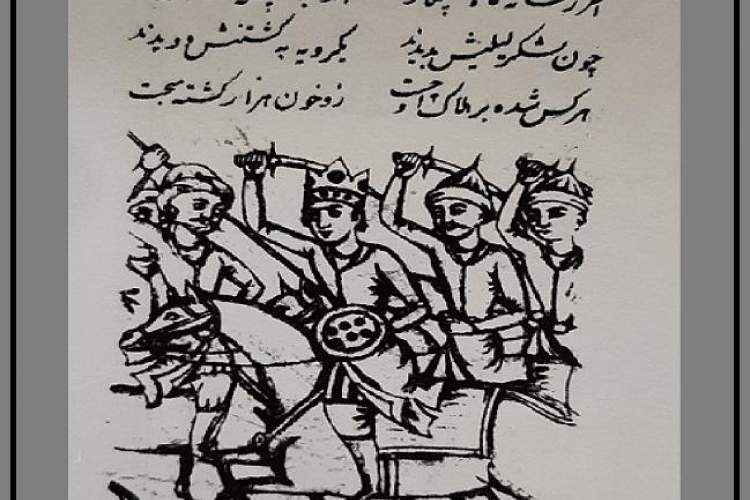 چون لشکر لیلیش بدیدند یکرویه به کشتنش دویدند
هر کس شده بر هلاک او چست زو خون هزار کشته میجست